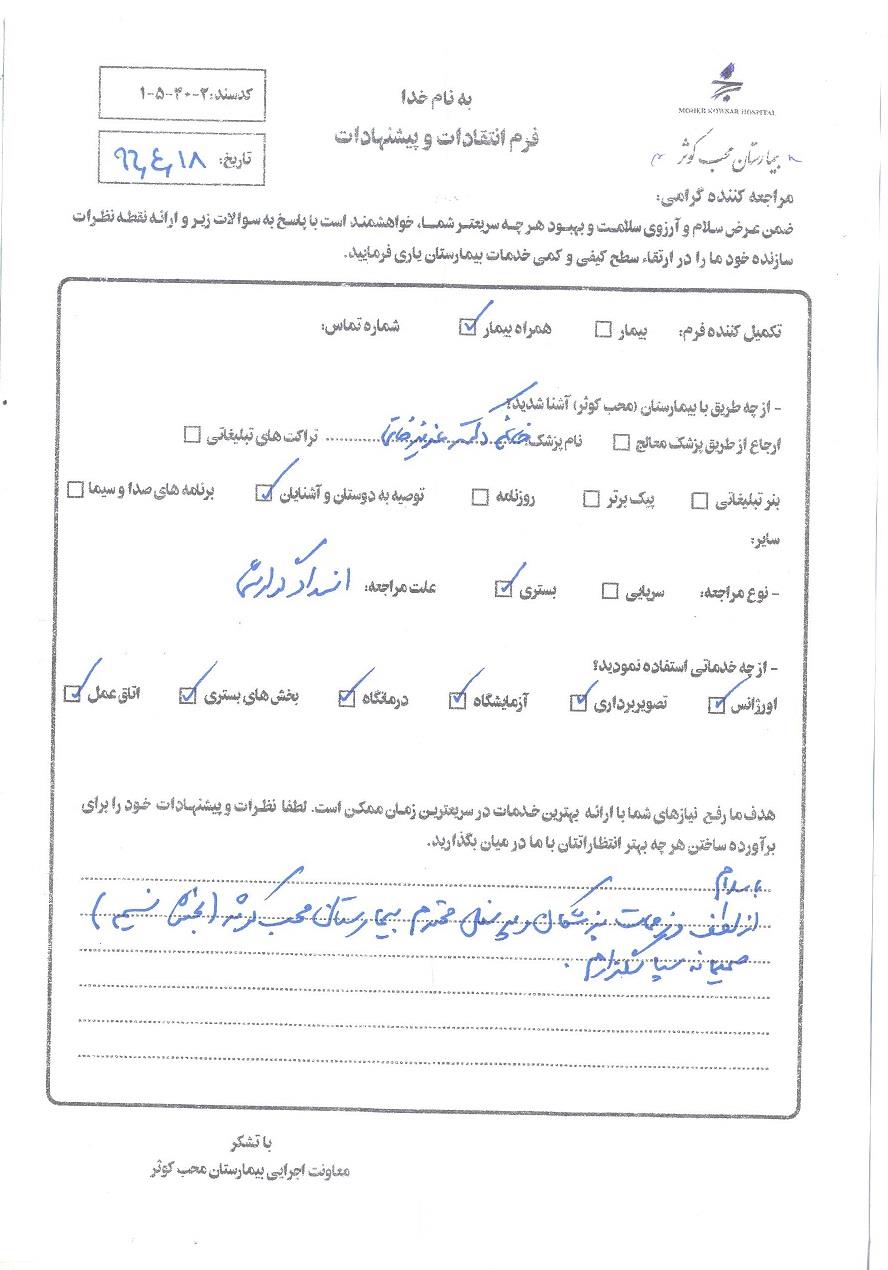 MOHEB KOWSAR HOSPITAL
بیمارستان محب کوثر
به نام خدا
فرم انتقادات و پیشنهادات
کدسند: ۲-۴۰-۵-۱
تاریخ: ۹۶,۴,۱۸
مراجعه کننده گرامی:
ضمن عرض سلام و آرزوی سلامت و بهبود هر چه سریعتر شما، خواهشمند است با پاسخ به سوالات زیر و ارائه نقطه نظرات
سازنده خود ما را در ارتقاء سطح کیفی و کمی خدمات بیمارستان یاری فرمایید.
تکمیل کننده فرم: بیمار ☐ همراه بیمار ☑ شماره تماس:
- از چه طریق با بیمارستان (محب کوثر) آشنا شدید؟
ارجاع از طریق پزشک معالج ☐ نام پزشک: خانم دکتر ............ تراکت های تبلیغاتی ☐
بنر تبلیغاتی ☐ پیک برتر ☐ روزنامه ☐ توصیه به دوستان و آشنایان ☑ برنامه های صدا و سیما ☐
سایر:
- نوع مراجعه: سرپایی ☐ بستری ☑ علت مراجعه: انسداد
- از چه خدماتی استفاده نمودید؟
اورژانس ☑ تصویربرداری ☑ آزمایشگاه ☑ درمانگاه ☑ بخش های بستری ☑ اتاق عمل ☑
هدف ما رفع نیازهای شما با ارائه بهترین خدمات در سریعترین زمان ممکن است. لطفا نظرات و پیشنهادات خود را برای
برآورده ساختن هر چه بهتر انتظاراتتان با ما در میان بگذارید.
با سلام
از لطف و زحمات پزشکان و پرسنل محترم بیمارستان محب کوثر (بخش نسیم)
صمیمانه سپاسگزارم.
با تشکر
معاونت اجرایی بیمارستان محب کوثر